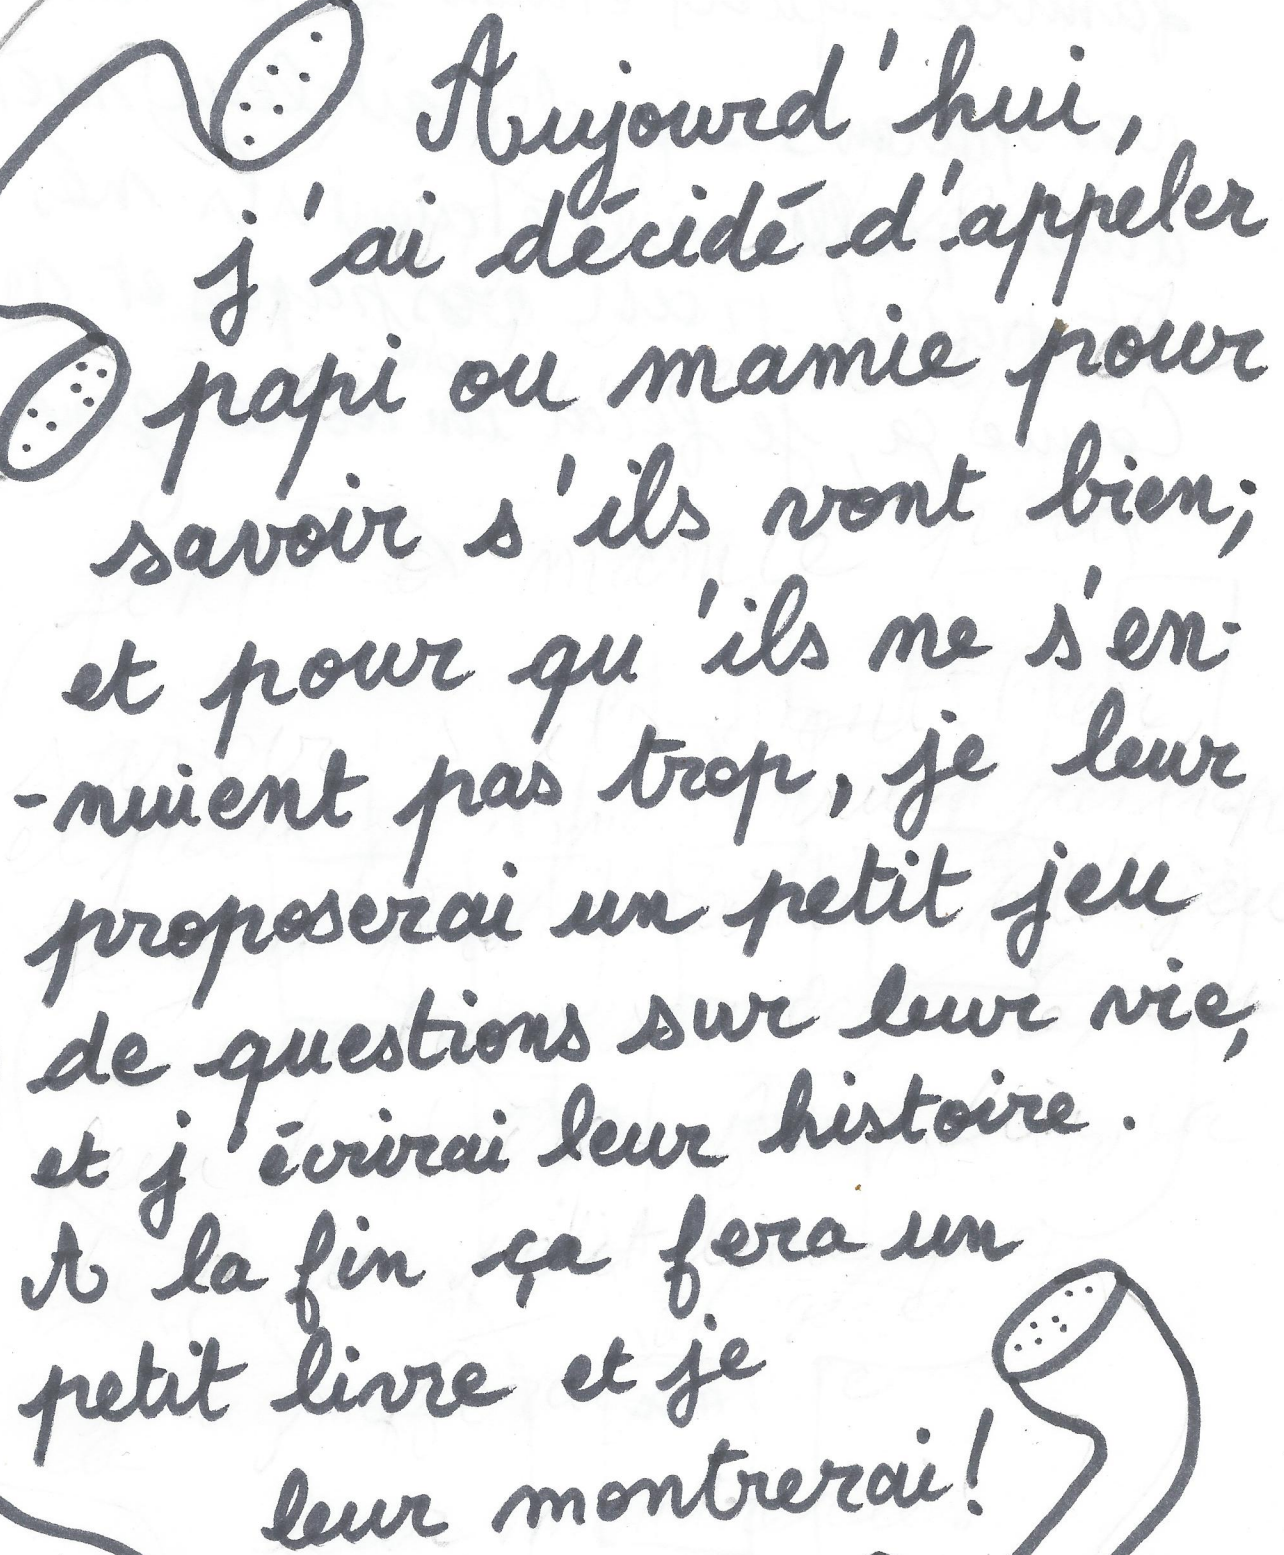 Aujourd'hui,
j'ai décidé d'appeler
papi ou mamie pour
savoir s'ils vont bien;
et pour qu'ils ne s'en-
-nuient pas trop, je leur
proposerai un petit jeu
de questions sur leur vie,
et j'écrirai leur histoire.
A la fin ça fera un
petit livre et je
leur montrerai!